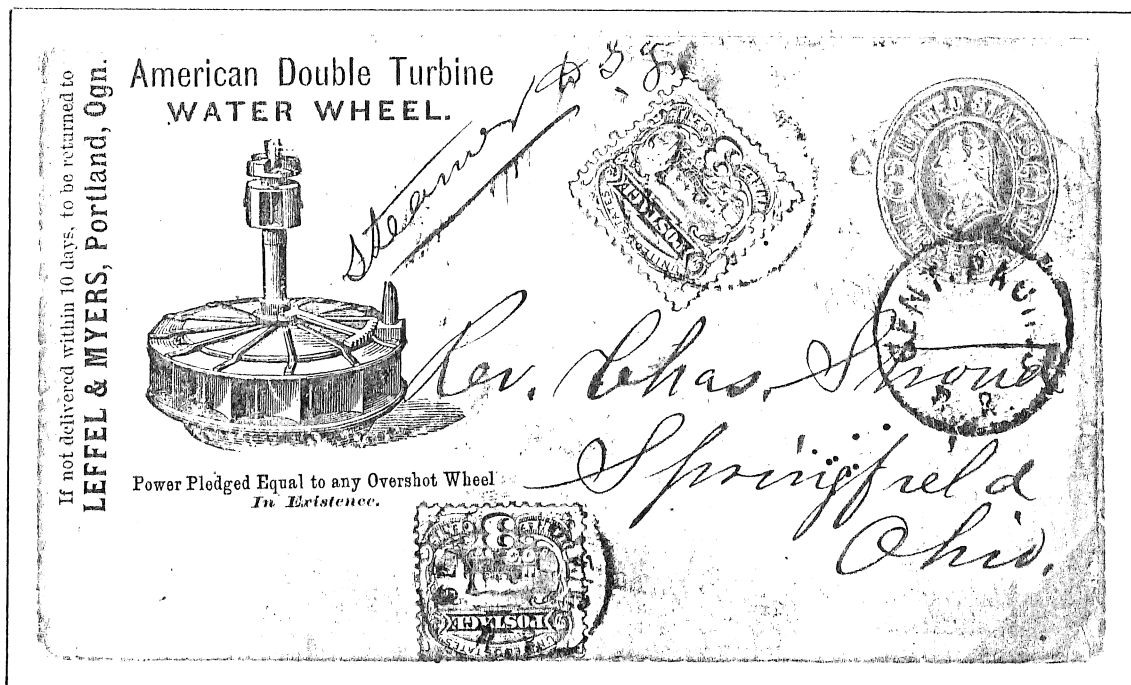 If not delivered within 10 days, to be returned to
LEFFEL & MYERS, Portland, Ogn.
American Double Turbine
WATER WHEEL.
Steamer
Power Pledged Equal to any Overshot Wheel
In Existence.
UNITED STATES
POSTAGE
UNITED STATES
Rev. Chas. Stroud
Springfield
Ohio.
3
POSTAGE